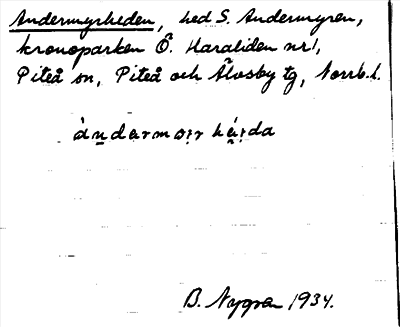 Andermyrheden, hed S. Andermyren,
kronoparken Ö. Haraliden nr 1,
Piteå sn, Piteå och Älvsby tg, Norrb. l.
ándarmo̩r hé̩ḍa
B. Nygren 1934.